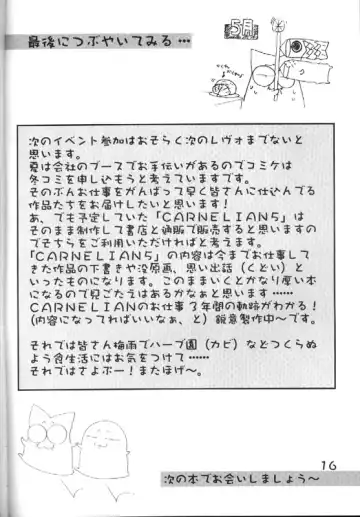 最後につぶやいてみる…
5月
次のイベント参加はおそらく次のレヴォまでないと
思います。
夏は会社のブースでお手伝いがあるのでコミケは
冬コミを申し込もうと考えています です。
そのぶんお仕事をがんばって早く皆さんに仕込んでる
作品たちをお届けしたいと思います!
あ、でも予定していた「CARNELIAN5」は
そのまま制作して書店と通販で販売すると思いますの
でそちらをご利用いただければと考えます。
「CARNELIAN5」の内容は今までお仕事して
きた作品の下書きや没原画、思い出話(くどい)と
いったものになります。このままいくとかなり厚い本
になるので見ごたえはあるかなぁと思います……
CARNELIANのお仕事3年間の軌跡がわかる!
(内容になってればいいなぁ、と)鋭意製作中〜です。
それでは皆さん梅雨でハーブ園(カビ)などつくらぬ
よう食生活にはお気をつけて……
それではさよぶー!またほげ〜。
16
次の本でお会いしましょう〜